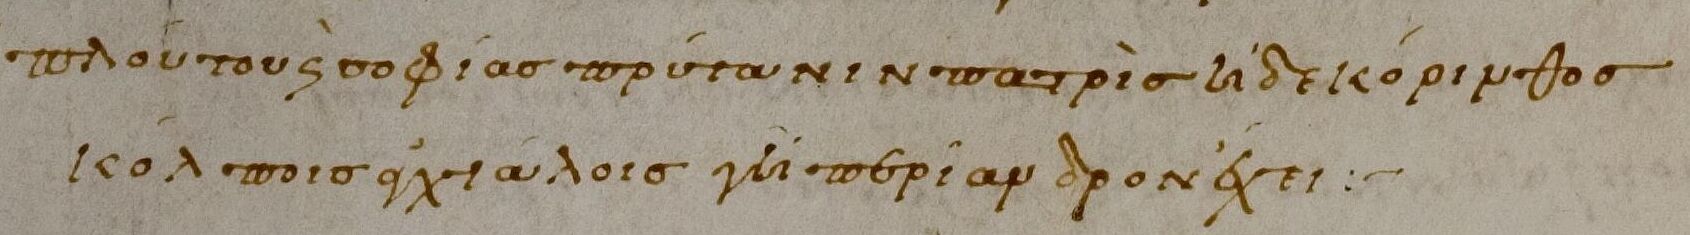 πλούτου ς σοφίας πρύτανιν πατρὶς ἥδε κόρινθος
κόλποις ἀγχιάλοις γῆ περίανδρον ἔχει :~